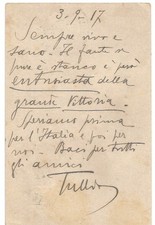 3-9-17
Sempre vivo e
sano. Il fante
pure è stanco è però
entusiasta della
grande Vittoria.
Speriamo prima
per l'Italia e poi per
noi. Baci per tutti
gli amici
Tullio